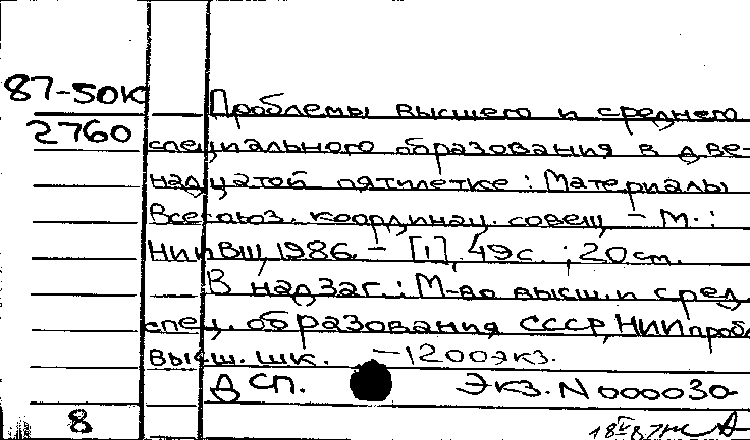 87-50К
2760
Проблемы высшего и среднего
специального образования в две-
надцатой пятилетке: Материалы
Всесоюз. координац. совещ. – М.:
НИИВШ, 1986. – [1], 49с.; 20см.
В надзаг.: М-во высш. и сред.
спец. образования СССР, НИИ пробл.
высш. шк. – 1200экз.
ДСП. Экз. N 000030
8